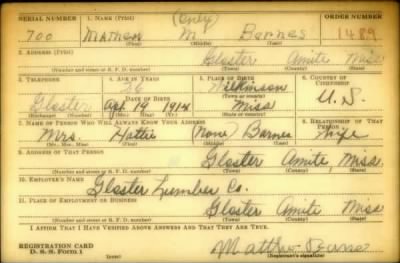 SERIAL NUMBER 1. NAME (Print) (Only) ORDER NUMBER
700 Mathew M Barnes 1489
(First) (Middle) (Last)
2. ADDRESS (Print)
Gloster Amite Miss
(Number and street or R. F. D. number) (Town) (County) (State)
3. TELEPHONE 4. AGE IN YEARS 5. PLACE OF BIRTH 6. COUNTRY OF CITIZENSHIP
26 Wilkinson
Gloster DATE OF BIRTH (Town or county) U.S.
Apr. 19 1914 Miss
(Exchange) (Number) (Mo.) (Day) (Yr.) (State or country)
7. NAME OF PERSON WHO WILL ALWAYS KNOW YOUR ADDRESS 8. RELATIONSHIP OF THAT PERSON
Mrs. Hattie (None) Barnes Wife
(Mr., Mrs., Miss) (First) (Middle) (Last)
9. ADDRESS OF THAT PERSON
Gloster Amite, Miss.
(Number and street or R. F. D. number) (Town) (County) (State)
10. EMPLOYER'S NAME
Gloster Lumber Co.
11. PLACE OF EMPLOYMENT OR BUSINESS
Gloster Amite Miss
(Number and street or R. F. D. number) (Town) (County) (State)
I AFFIRM THAT I HAVE VERIFIED ABOVE ANSWERS AND THAT THEY ARE TRUE.
REGISTRATION CARD
D. S. S. Form 1 (over) (Registrant's signature)